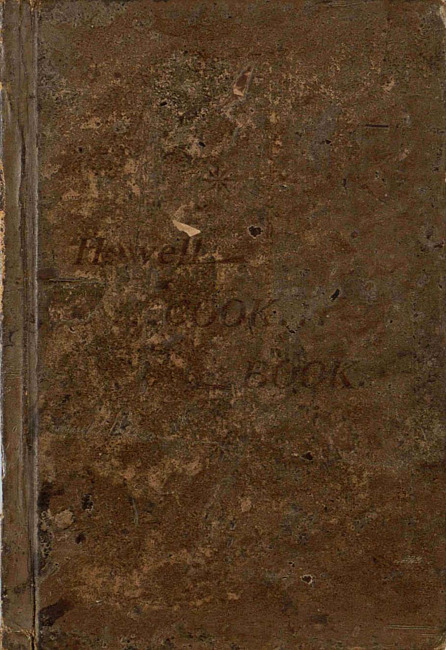 Howell
COOK
BOOK.